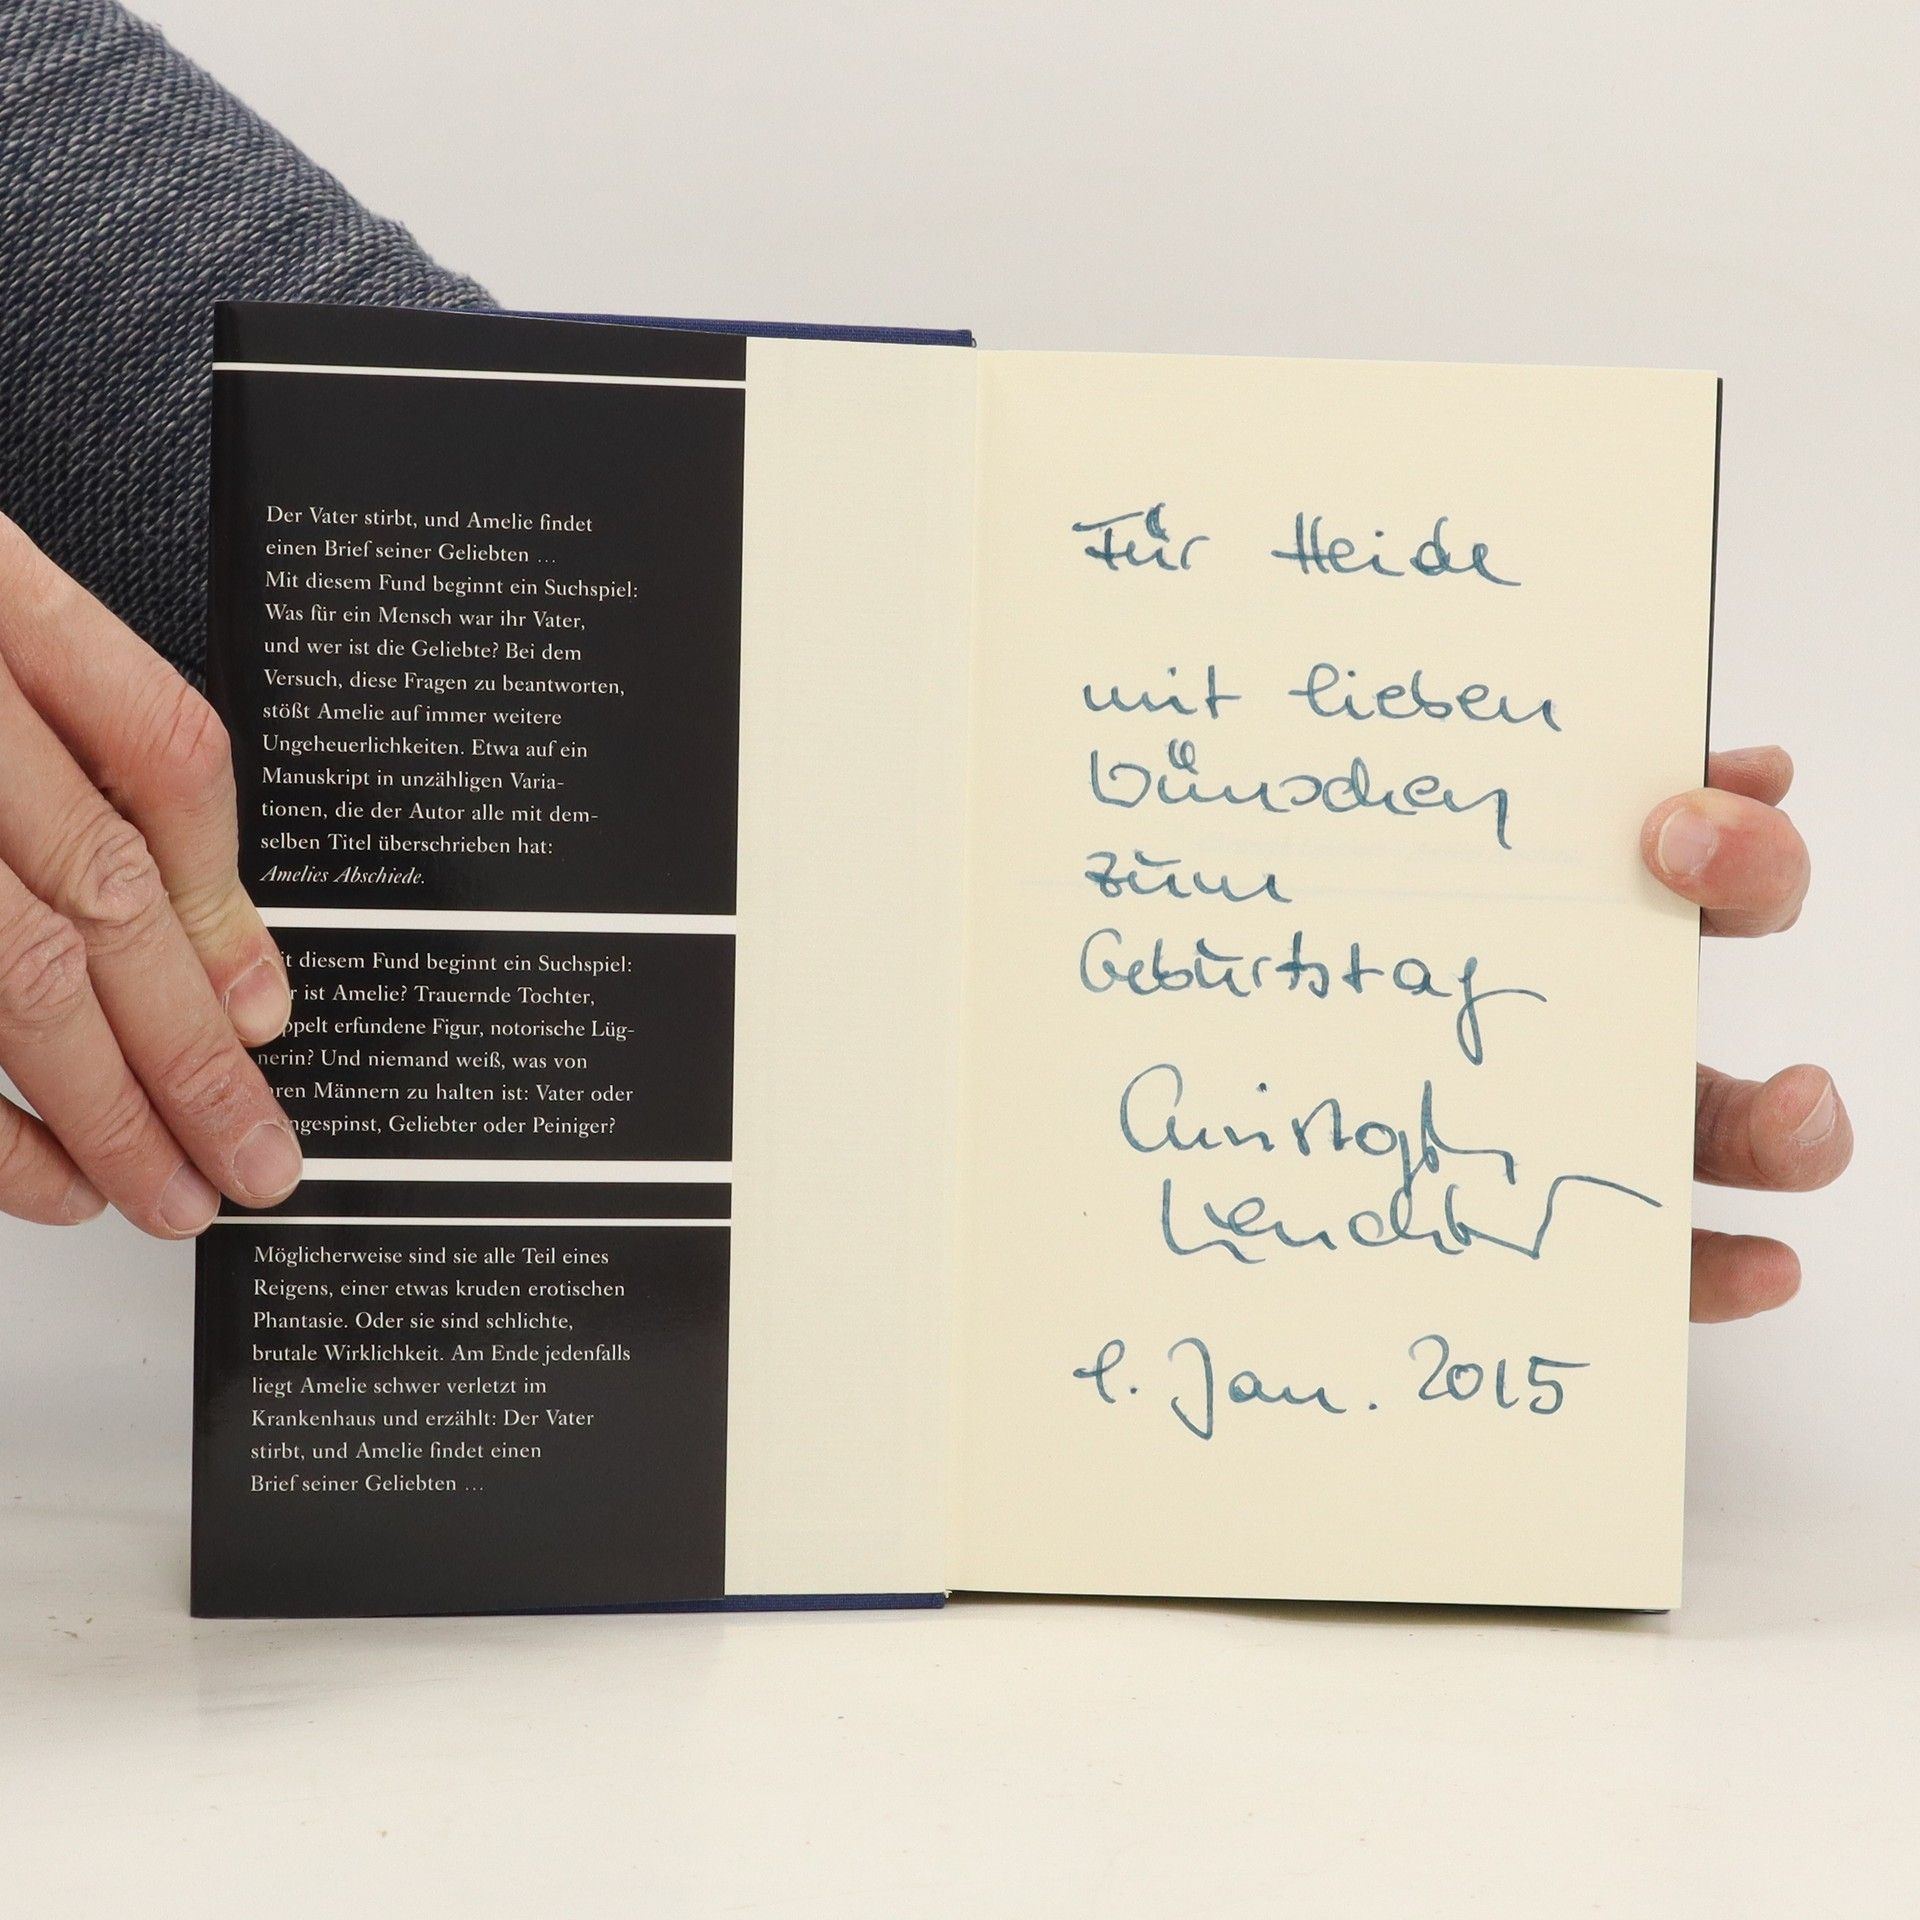 Der Vater stirbt, und Amelie findet
einen Brief seiner Geliebten …
Mit diesem Fund beginnt ein Suchspiel:
Was für ein Mensch war ihr Vater,
und wer ist die Geliebte? Bei dem
Versuch, diese Fragen zu beantworten,
stößt Amelie auf immer weitere
Ungeheuerlichkeiten. Etwa auf ein
Manuskript in unzähligen Varia-
tionen, die der Autor alle mit dem-
selben Titel überschrieben hat:
Amelies Abschiede.
diesem Fund beginnt ein Suchspiel:
ist Amelie? Trauernde Tochter,
erfundene Figur, notorische Lüg-
nerin? Und niemand weiß, was von
Männern zu halten ist: Vater oder
Geliebter oder Peiniger?
Möglicherweise sind sie alle Teil eines
Reigens, einer etwas kruden erotischen
Phantasie. Oder sie sind schlichte,
brutale Wirklichkeit. Am Ende jedenfalls
liegt Amelie schwer verletzt im
Krankenhaus und erzählt: Der Vater
stirbt, und Amelie findet einen
Brief seiner Geliebten …
Für Heide
mit lieben
Wünschen
zum
Geburtstag
Christoph
Jan. 2015